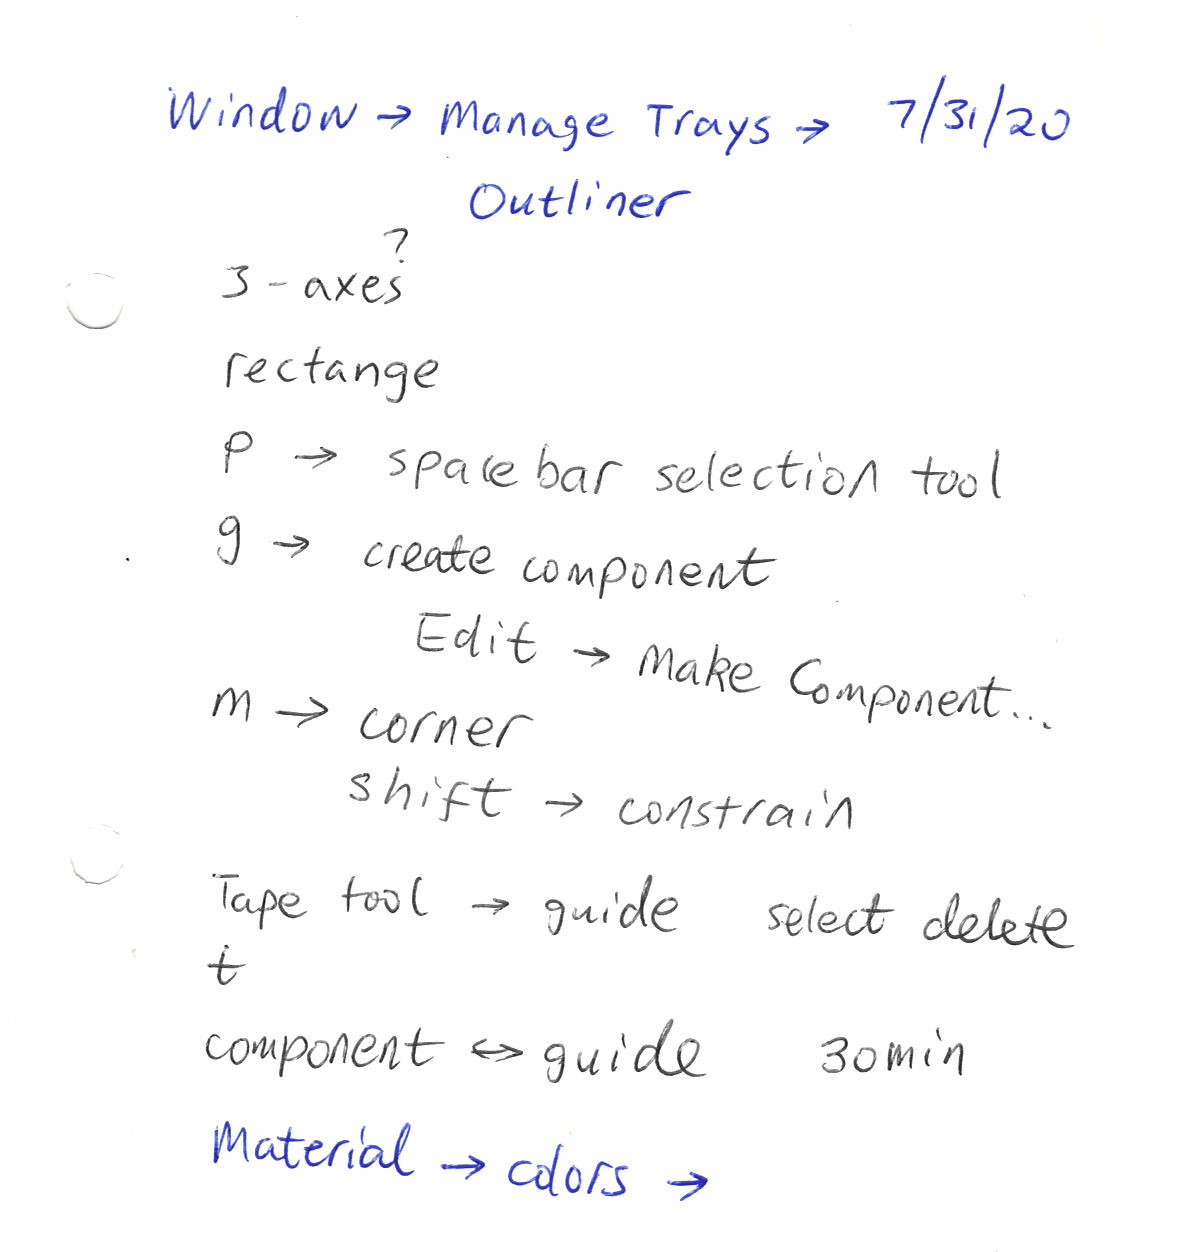 Window → Manage Trays → 7/31/20
Outliner
?
3-axes
rectange
p → space bar selection tool
g → create component
Edit → Make Component...
m → corner
shift → constrain
Tape tool → guide select delete
t
component ↔ guide 30min
Material → colors →